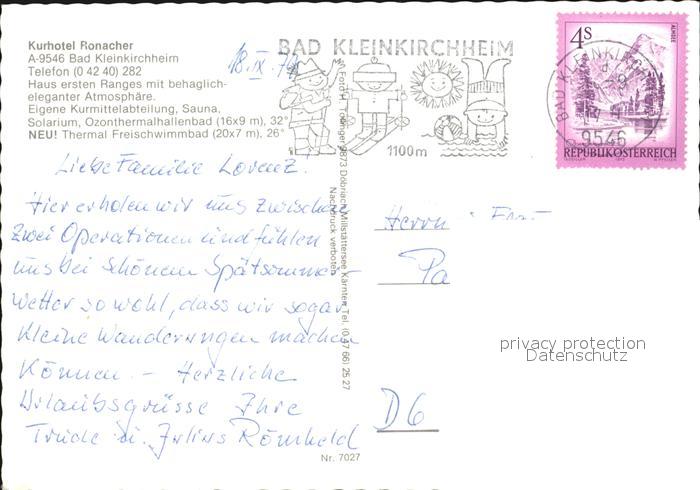 Kurhotel Ronacher
A-9546 Bad Kleinkirchheim
Telefon (0 42 40) 282
Haus ersten Ranges mit behaglich-
eleganter Atmosphäre.
Eigene Kurmittelabteilung, Sauna,
Solarium, Ozonthermalhallenbad (16x9 m), 32°
NEU! Thermal Freischwimmbad (20x7 m), 26°
18. IX
BAD KLEINKIRCHHEIM
1100m
4s
ALMSEE
BAD KLEINKIRCH
9546
REPUBLIK ÖSTERREICH
Liebe Familie Lorenz!
Hier erholen wir uns zwischen
zwei Operationen und fühlen
uns bei schönem Spätsommer-
wetter so wohl, dass wir sogar
kleine Wanderungen machen
können. – Herzliche
Urlaubsgrüsse Ihre
Trude u. Julius Römheld
9873 Döbriach Millstättersee Kärnten Tel. (0 47 66) 25 27
Nachdruck verboten
Nr. 7027
Herrn Frau
Pa
D 6
privacy protection
Datenschutz